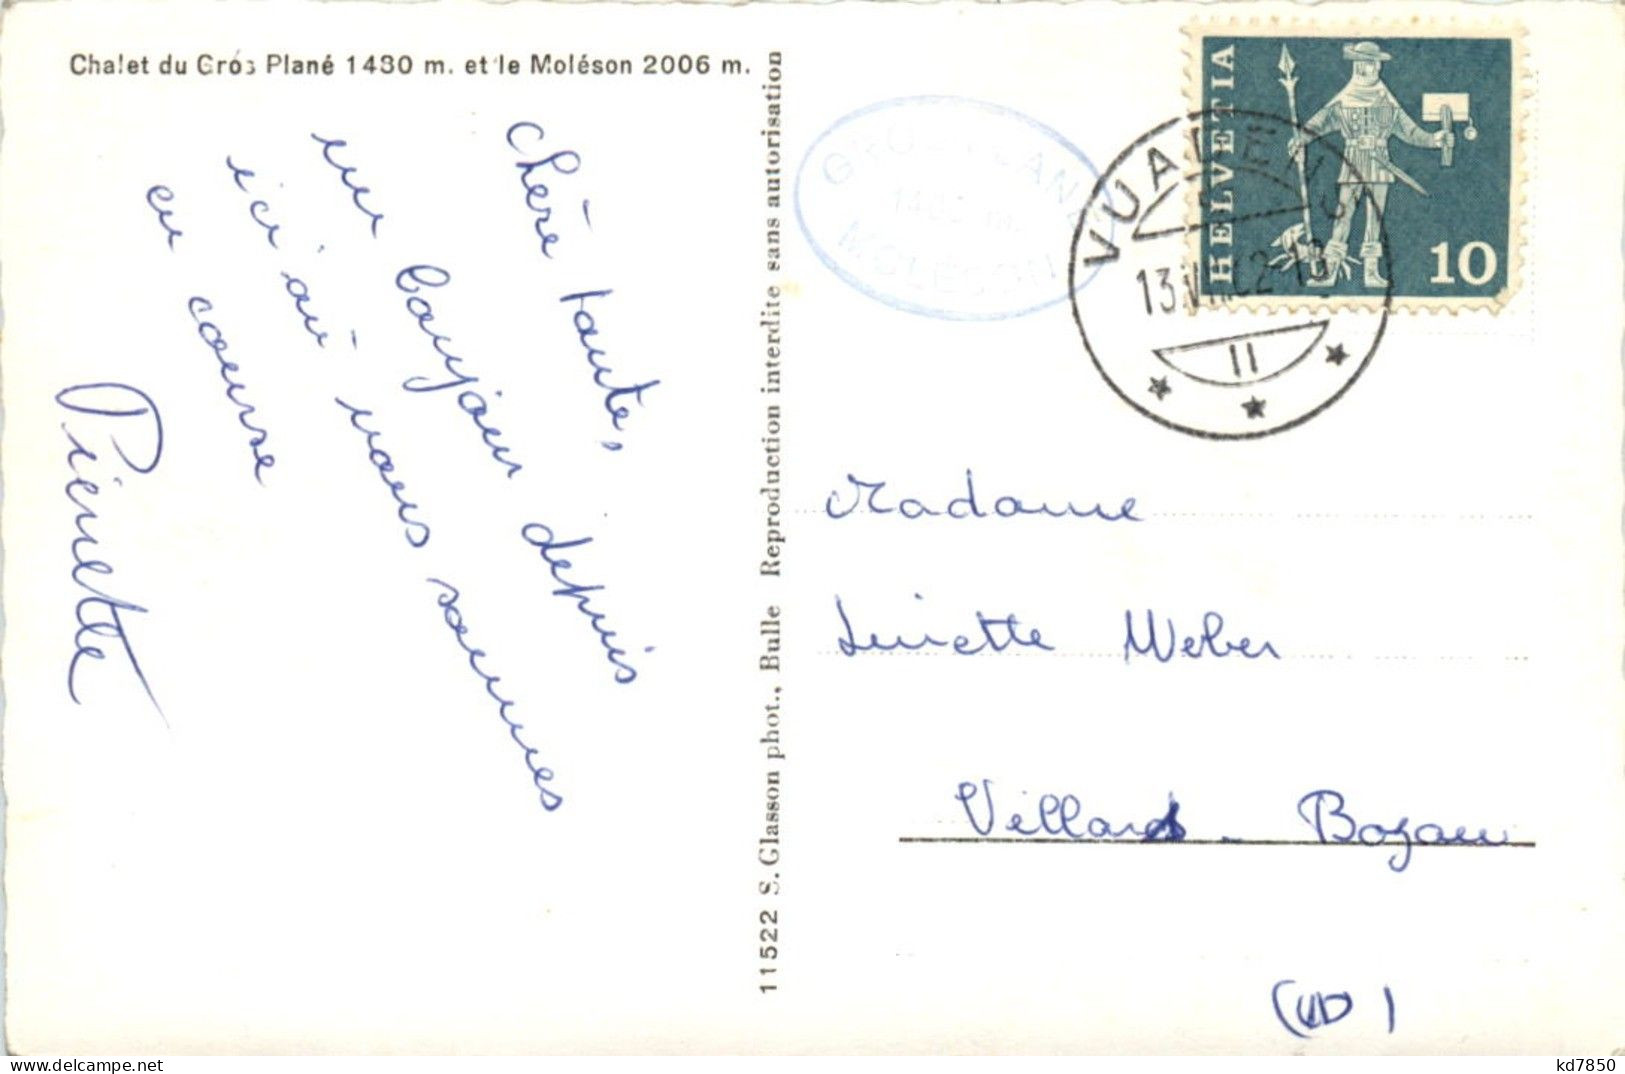 Chalet du Gros Plané 1480 m. et le Moléson 2006 m.
chère tante,
un bonjour depuis
ici où nous sommes
en course
Pierrette
11522 S. Glasson phot., Bulle Reproduction interdite sans autorisation
GROS PLANÉ
1480 m.
MOLÉSON
HELVETIA
10
VUADENS
13.VII.62-13
11
Madame
Linette Weber
Villard - Bozon
(VD)
kd7850